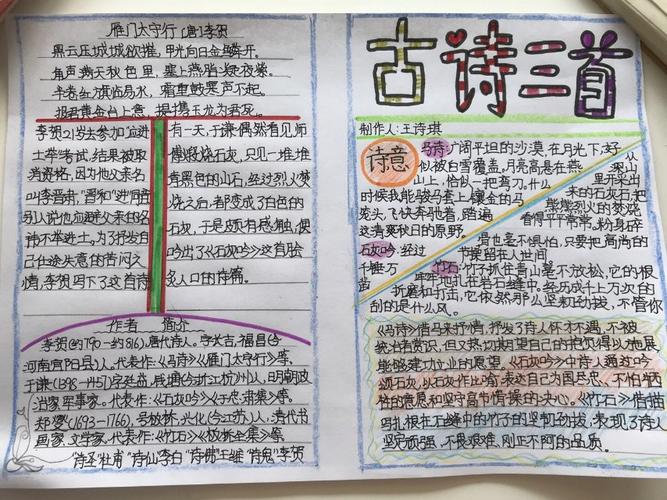 雁门太守行 [唐]李贺
黑云压城城欲摧,甲光向日金鳞开。
角声满天秋色里,塞上燕脂凝夜紫。
半卷红旗临易水,霜重鼓寒声不起。
报君黄金台上意,提携玉龙为君死。
李贺21岁去参加"进
士举"考试,结果被取
消资格,因为他父亲名
叫李晋肃,"晋和"进"同音
别人说他应避父亲的名
讳不举进士。为了抒发自
己仕途失意的苦闷之
情,李贺写下了这首诗
有一天,于谦偶然看见师
傅煅烧石灰,只见一堆堆
青黑色的山石,经过烈火焚
烧之后,都变成了白色的
石灰,于是颇有感触,便
吟出了《石灰吟》这首脍
炙人口的诗篇。
作者 简介
李贺(约790一约816),唐代诗人。字长吉,福昌(今
河南宜阳县)人。代表作:《马诗》《雁门太守行》等。
于谦(1398-1457)字廷益,钱塘(今浙江杭州)人,明朝政
治家、军事家。代表作:《石灰吟》《于忠肃集》等。
郑燮(1693-1766),号板桥,兴化(今江苏)人,清代书
画家、文学家。代表作:《竹石》《板桥全集》等
"诗圣"杜甫 "诗仙"李白 "诗佛"王维 "诗鬼"李贺
古诗三首
制作人:王诗琪
诗意
马诗:广阔平坦的沙漠,在月光下,好
似被白雪覆盖。月亮高悬在燕
山上,恰似一把弯刀。什么
时候我能骑马套上镶金的马
笼头,飞快奔驰着,踏遍
这清爽秋日的原野。
石灰吟:经过
千锤万
从
深山
里开采出
来的石灰石,把
能熊烈火的焚烧
看得平平常常。粉身碎
骨也毫不惧怕,只要把高尚的
节操留在人世间
竹石:竹子抓住青山毫不放松,它的根
牢牢地扎在岩石缝中。经历成千上万次的
折磨和打击,它依然那么坚韧劲拔,不管你
刮的是什么风。
《马诗》借马来抒情,抒发了诗人怀才不遇,不被
统治者赏识,但又热切期望自己的抱负得以施展
能够建功立业的愿望。《石灰吟》中诗人通过吟
颂石灰,以石灰作比喻,表达自己为国尽忠、不怕牺
牲的意愿和坚守高节情操的决心。《竹石》借描
写扎根在石缝中的竹子的坚韧劲拔,表现了诗人
坚定顽强、不畏艰难、刚正不阿的品质。